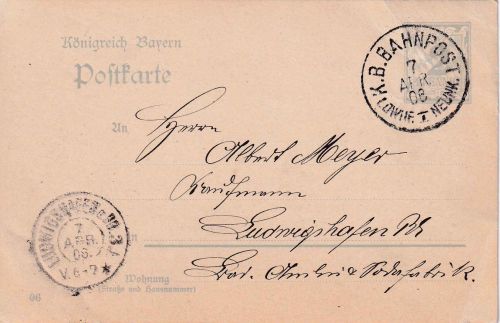 Königreich Bayern
Postkarte
K.B. BAHNPOST
7
APR
06
LDWHF. NEUNK.
An
Herrn
Albert Meyer
Kaufmann
Ludwigshafen Rh
Bad. Anilin & Sodafabrik.
LUDWIGSHAFEN
7
APR.
06.
V. 6-7
in
Wohnung
(Straße und Hausnummer)
06